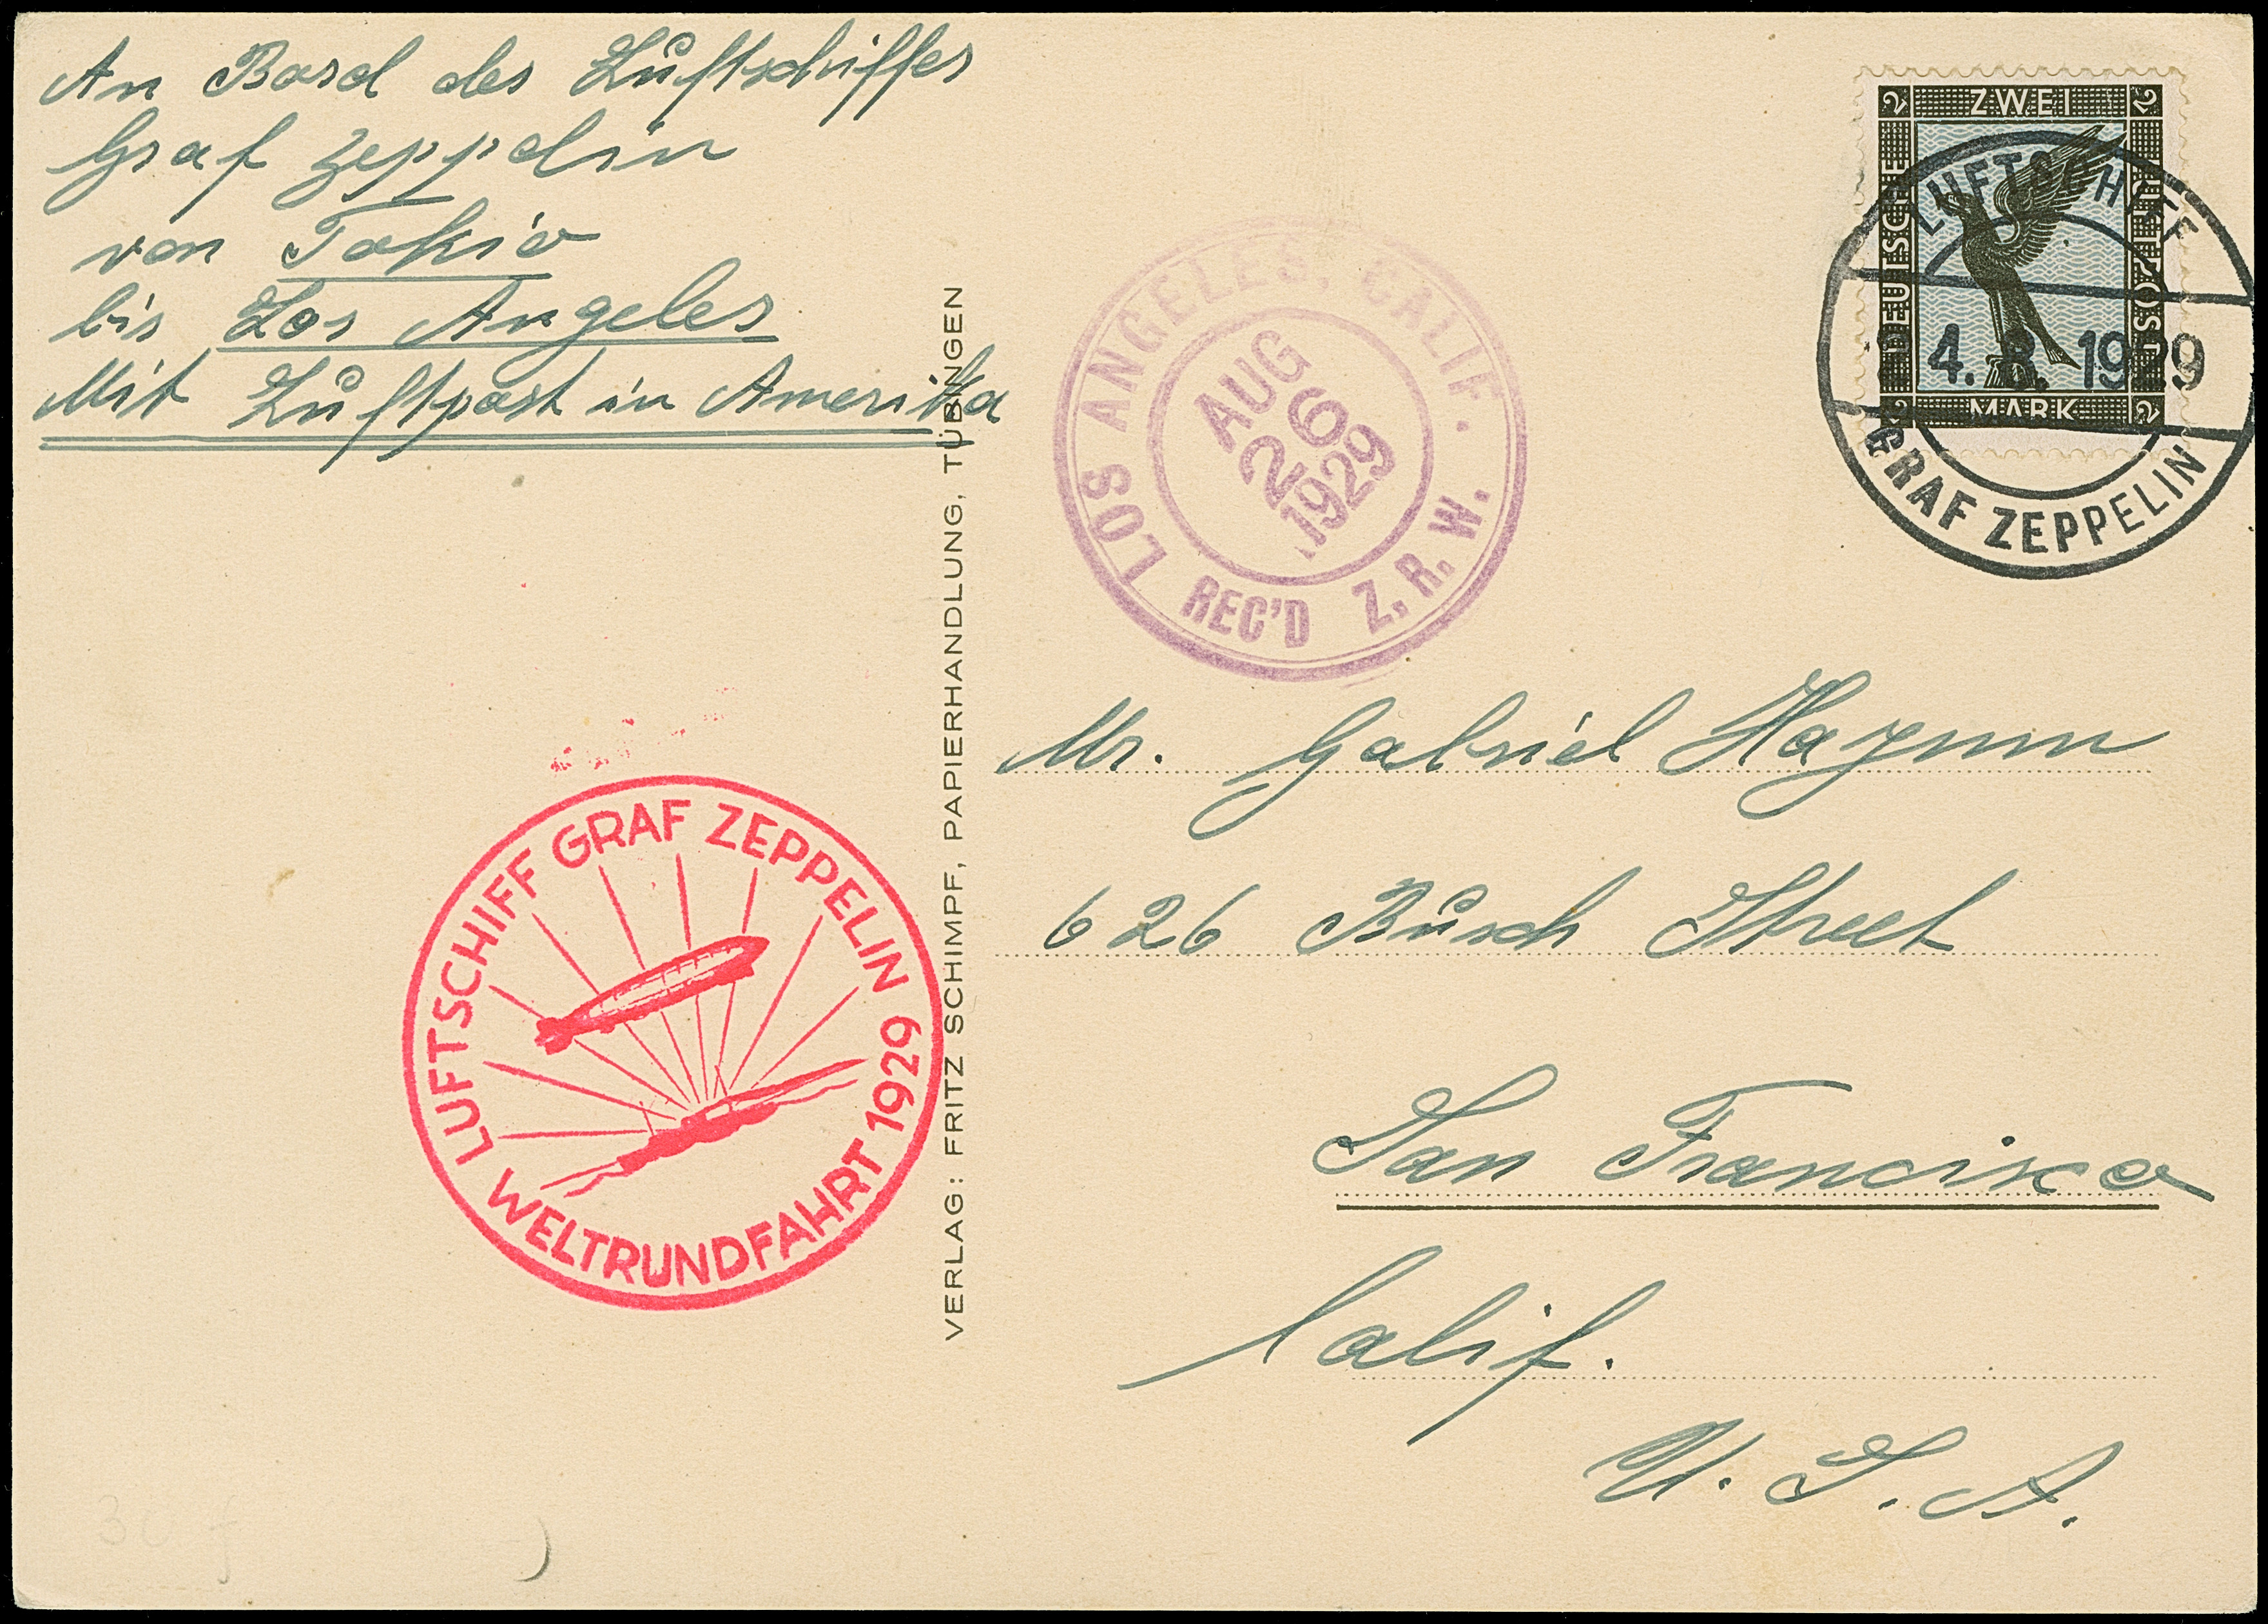 An Bord des Luftschiffes
Graf Zeppelin
von Tokio
bis Los Angeles
Mit Luftpost in Amerika
2 ZWEI 2
DEUTSCHE
LUFTPOST
2 MARK 2
LUFTSCHIFF
4. 8. 1929
GRAF ZEPPELIN
LOS ANGELES, CALIF.
AUG
26
1929
REC'D Z.R.W.
VERLAG: FRITZ SCHIMPF, PAPIERHANDLUNG, TÜBINGEN
Mr. Gabriel
626 Busch Street
San Francisco
Calif.
U.S.A.
LUFTSCHIFF GRAF ZEPPELIN
WELTRUNDFAHRT 1929